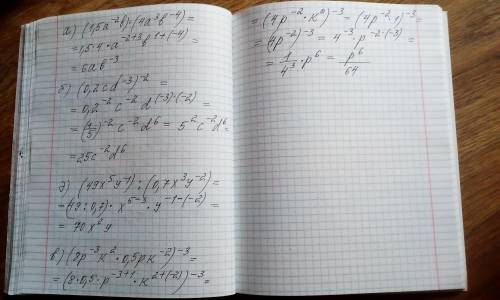 а) (1,5a⁻²b)·(4a³b⁻⁴)=
=1,5·4·a⁻²⁺³b¹⁺⁽⁻⁴⁾=
=6ab⁻³
б) (0,2cd⁻³)⁻²=
=0,2⁻²c⁻²d⁽⁻³⁾·⁽⁻²⁾=
=(1/5)⁻²c⁻²d⁶=5²c⁻²d⁶=
=25c⁻²d⁶
д) (49x⁵y⁻¹):(0,7x³y⁻²)=
=(49:0,7)·x⁵⁻³·y⁻¹⁻⁽⁻²⁾=
=70x²y
в) (8p⁻³к²·0,5pк⁻²)⁻³=
=(8·0,5·p⁻³⁺¹·к²⁺⁽⁻²⁾)⁻³=
=(4p⁻²·к⁰)⁻³=(4p⁻²·1)⁻³=
=(4p⁻²)⁻³=4⁻³·p⁻²·⁽⁻³⁾=
=1/4³·p⁶=p⁶/64